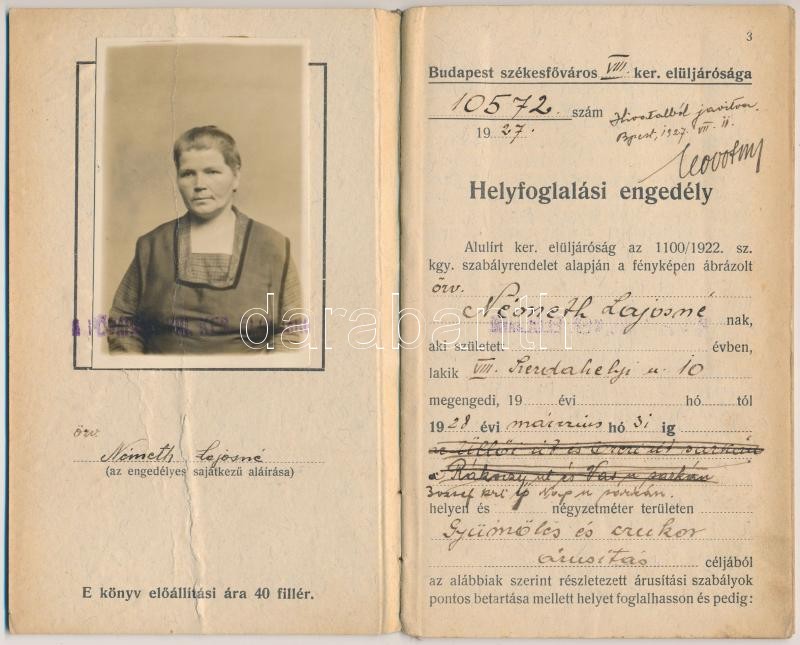 örv
Németh Lajosné
(az engedélyes sajátkezű aláírása)
E könyv előállítási ára 40 fillér.
3
Budapest székesfőváros VIII. ker. elüljárósága
10572. szám
1927.
Hivatalból javitva.
Bpest, 1927. VII. 11.
Helyfoglalási engedély
Alulírt ker. elüljáróság az 1100/1922. sz.
kgy. szabályrendelet alapján a fényképen ábrázolt
örv.
Németh Lajosné nak,
aki született évben,
lakik VIII. u 10
megengedi, 19 évi hó tól
1928 évi március hó 31 ig
a Üllői út és út sarkán
a Rákóczy ut és Vas u sarkán
József krt u sarkán.
helyen és négyzetméter területen
Gyümölcs és cukor
árusítás céljából
az alábbiak szerint részletezett árusítási szabályok
pontos betartása mellett helyet foglalhasson és pedig:
darabanth